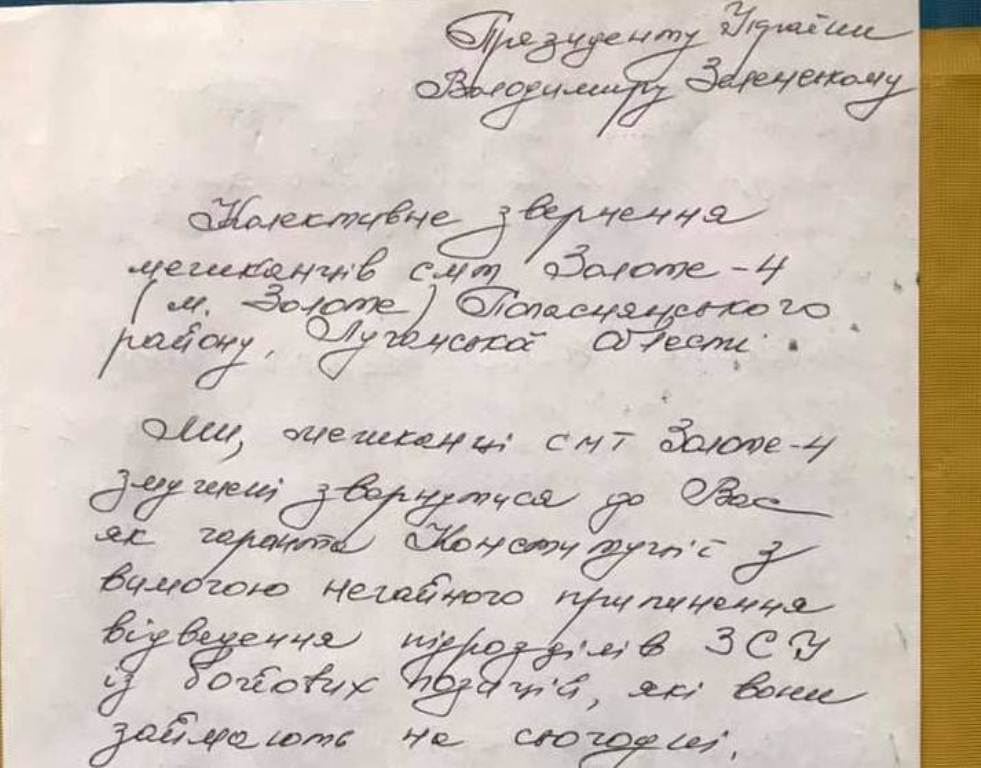 Президенту України
Володимиру Зеленському
Колективне звернення
мешканців смт Золоте-4
(м. Золоте) Попаснянського
району, Луганської області.
Ми, мешканці смт Золоте-4
змушені звернутися до Вас
як гаранта Конституції з
вимогою негайного припинення
відведення підрозділів ЗСУ
із бойових позицій, які вони
займають на сьогодні.